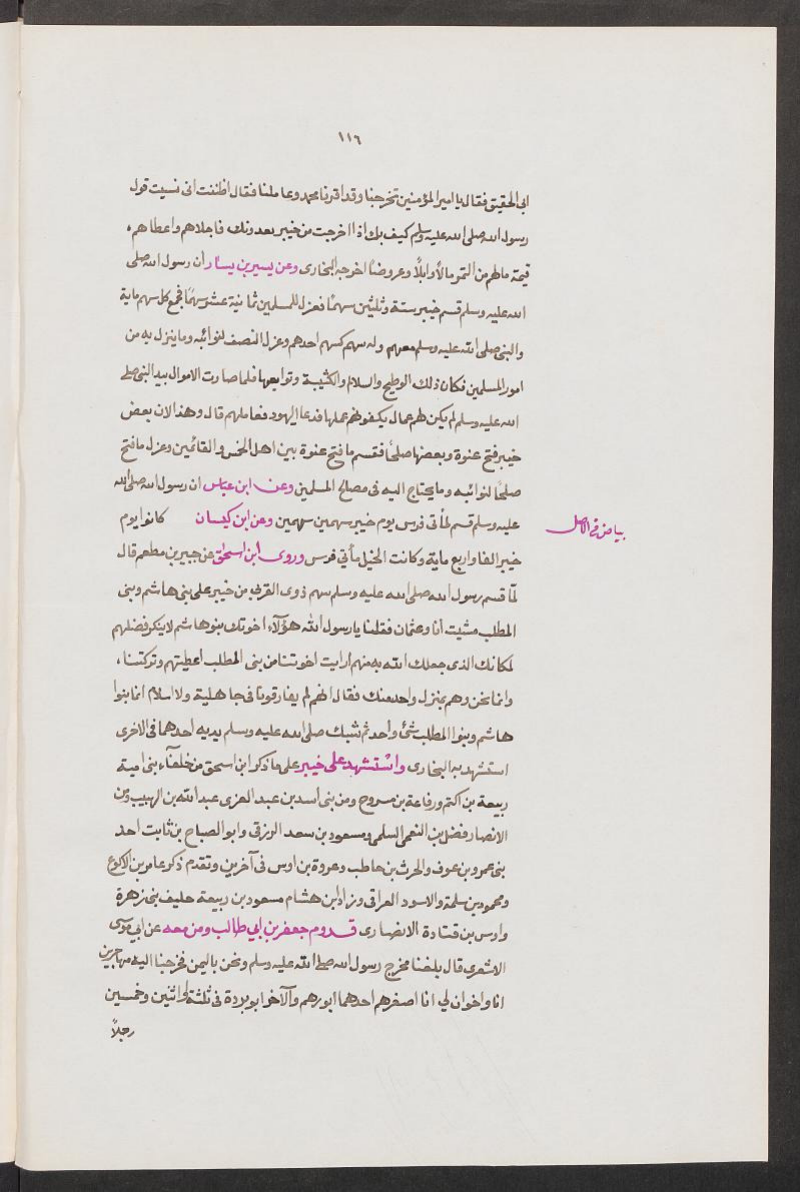 ١١٦
ابى الحقيق فقال يا امير المؤمنين تخرجنا وقد اقرنا محمد وعاملنا فقال اظننت انى نسيت قول
رسول الله صلى الله عليه وسلم كيف بك اذا اخرجت من خيبر بعدونك فاجلاهم واعطاهم
قيمة مالهم من التمر مالاً وابلاً وعروضاً اخرجه البخارى وعن يسير بن يسار أن رسول الله صلى
الله عليه وسلم قسم خيبر ستة وثلثين سهمًا فعزل للمسلمين ثمانية عشر سهمًا فجمع كل سهم ماية
والنبى صلى الله عليه وسلم معهم وله سهم كسهم احدهم وعزل النصف لنوائبه وما ينزل به من
امور المسلمين فكان ذلك الوطيح والسلام والكثيبة وتوابعها فلما صارت الاموال بيد النبى صلى
الله عليه وسلم لم يكن لهم عمال يكفونهم عملها فدعا اليهود فعاملهم قال وهذا لان بعض
خيبر فتح عنوة وبعضها صلحًا فقسم ما فتح عنوة بين اهل الخمس والقائمين وعزل ما فتح
صلحًا لنوائبه وما يحتاج اليه فى مصالح المسلمين وعن ابن عباس ان رسول الله صلى الله
عليه وسلم قسم لمأتى فرس يوم خيبر سهمين سهمين وعن ابن كيسان كانوا يوم
بياض فى الاصل
خيبر الفا واربع ماية وكانت الخيل مأتي فرس وروى ابن اسحق عن جبير بن مطعم قال
لمّا قسم رسول الله صلى الله عليه وسلم سهم ذوى القربى من خيبر على بنى هاشم وبنى
المطلب مشيت أنا وعثمان فقلنا يا رسول الله هؤلآء اخوتك بنو هاشم لا ينكر فضلهم
لمكانك الذى جعلك الله به منهم أرايت اخوتنا من بنى المطلب اعطيتهم وتركتنا
وانما نحن وهم بمنزل واحد منك فقال انهم لم يفارقونا فى جاهلية ولا اسلام انما بنوا
هاشم وبنوا المطلب شئ واحد ثم شبك صلى الله عليه وسلم يديه احدهما فى الاخرى
استشهد به البخارى واستشهد على خيبر على ما ذكر ابن اسحق من خلفآء بنى امية
ربيعة بن اكتم ورفاعة بن مسروح ومن بنى اسد بن عبد العزى عبد الله بن الهبيب ومن
الانصار فضل بن النعمى السلمى ومسعود بن سعد الزرقى وابو الصباح بن ثابت احد
بنى عمرو بن عوف والحرث بن حاطب وعروة بن اوس فى آخرين وتقدم ذكر عامر بن الاكوع
ومحمود بن سلمة والاسود العراقى وزاد ابن هشام مسعود بن ربيعة حليف بنى زهرة
واوس بن قتادة الانصارى قدوم جعفر بن ابي طالب ومن معه عن ابي موسى
الاشعرى قال بلغنا مخرج رسول الله صلى الله عليه وسلم ونحن باليمن فخرجنا اليه مهاجرين
انا واخوان لي انا اصغرهم احدهما ابورهم والآخر ابو بردة فى ثلثة او اثنين وخمسين
رجلاً